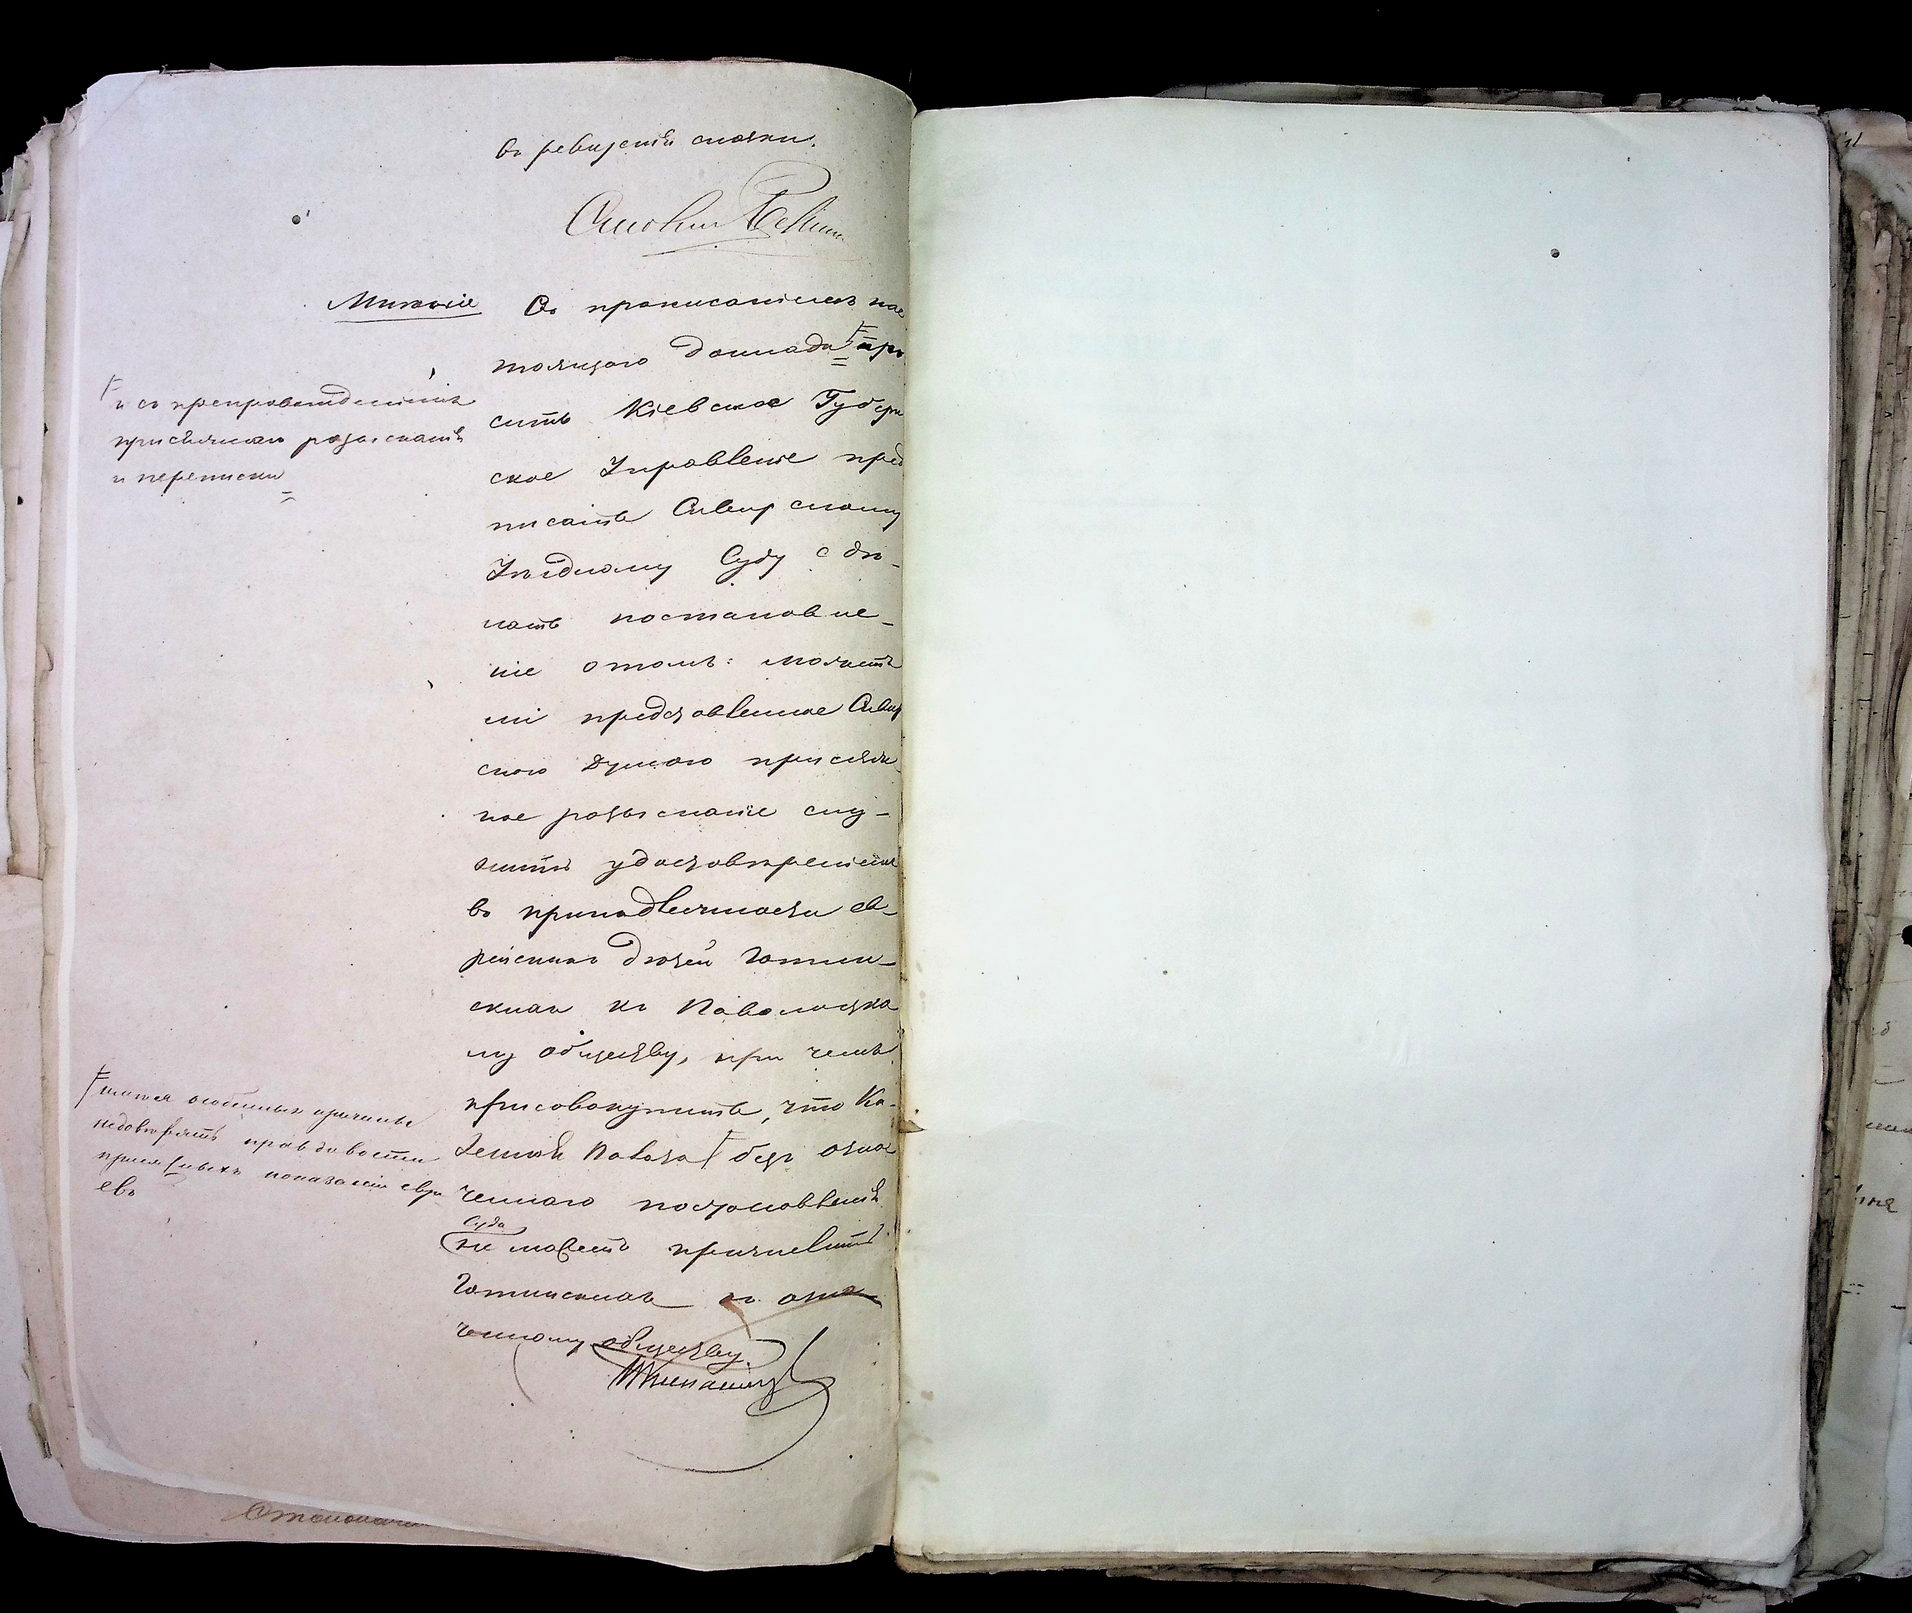 въ ревизскія сказки.
Мнѣніе
Съ прописаніемъ нас
тоящаго доклада про
сить Кіевское Губерн
ское Управленіе пред
писать Сквирскому
Уѣздному Суду сдѣ-
лать постановле-
ніе о томъ: можетъ
ли представленное Сквир
скою Думою присяж
ное розысканіе слу-
жить удостовѣреніемъ
въ принадлежности ев-
рейскихъ дѣтей
къ Паволоцко
му обществу, при чемъ
присовокупить, что Ка-
зенная Палата безъ озна
ченнаго постановленія
Суда
не можетъ причислить
къ озна
ченному обществу.
и съ препровожденіемъ
присяжнаго розысканія
и переписки
особенныхъ причинъ
недовѣрять правдивости
присяжныхъ показаній евре
евъ